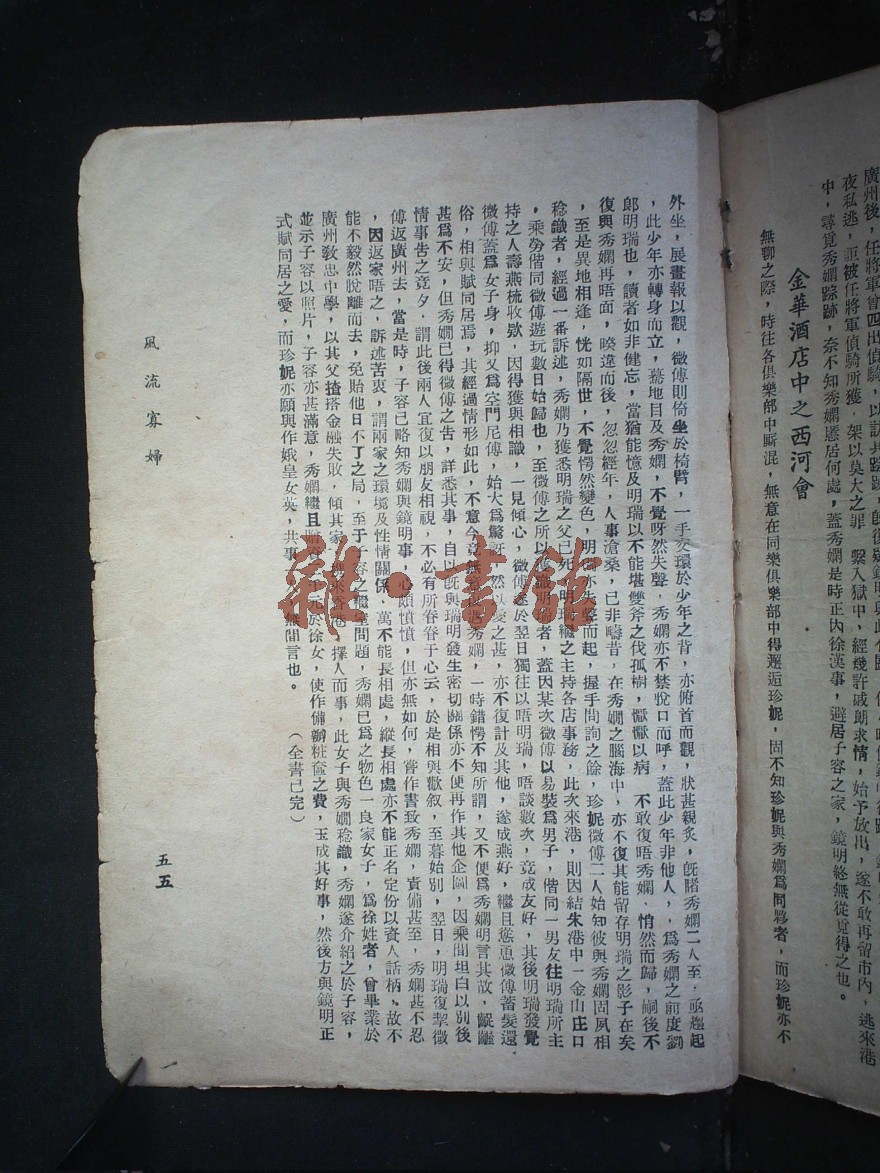 廣州後，任將軍曾四出偵騎，以訪其踪跡，
夜私逃，詎被任將軍偵騎所獲．架以莫大之罪　繫入獄中，經幾許戚朗求情，始予放出，遂不敢再留市內，逃來港
中，尋覓秀嫻踪跡，奈不知秀嫻懸居何處，蓋秀嫻是時正因徐漢事，避居子容之家，鏡明終無從覓得之也。
金華酒店中之西河會
無聊之際，時往各俱樂部中廝混，無意在同樂俱樂部中得邂逅珍妮，固不知珍妮與秀嫻爲同夥者，而珍妮亦不
外坐，展畫報以觀，微傅則倚坐於椅臂，一手交環於少年之背，亦俯首而觀，狀甚親炙，旣睹秀嫻二人至．亟趨起
，此少年亦轉身而立，驀地目及秀嫻，不覺呀然失聲，秀嫻亦不禁悅口而呼，蓋此少年非他人，爲秀嫻之前度劉
郎明瑞也，讀者如非健忘，當猶能憶及明瑞以不能堪雙斧之伐孤樹，懨懨以病　不敢復晤秀嫻．悄然而歸，嗣後不
復與秀嫻再晤面，暌違而後，忽忽經年，人事滄桑，已非疇昔，在秀嫻之腦海中，亦不復其能留存明瑞之影子在矣
，至是異地相逢，恍如隔世，不覺愕然變色，明瑞亦失聲而起，握手問詢之餘，珍妮微傅二人始知彼與秀嫻固夙相
稔識者，經過一番訴述，秀嫻乃獲悉明瑞之父已死，明瑞繼之主持各店事務，此次來港，則因結朱港中一金山庄口
，乘勞偕同微傅遊玩數日始歸也，至微傅之所以獲識明瑞者，蓋因某次微傅以易裝爲男子，偕同一男友往明瑞所主
持之人壽燕梳收欵，因得獲與相識，一見傾心，微傅遂於翌日獨往以晤明瑞，晤談數次，竟成友好，其後明瑞發覺
微傅蓋爲女子身，抑又爲空門尼傅，始大爲驚訝，然以愛之甚，亦不復計及其他，遂成燕好，繼且慫恿微傅蓄髮還
俗，相與賦同居焉，其經過情形如此，不意今竟無意得遇秀嫻，一時錯愕不知所謂，又不便爲秀嫻明言其故，齷齪
甚爲不安，但秀嫻已得微傅之告，詳悉其事，自以旣與瑞明發生密切關係亦不便再作其他企圖，因乘間坦白以別後
情事告之竟夕．謂此後兩人宜復以朋友相視，不必有所眷眷于心云，於是相與歡叙，至暮始別，翌日，明瑞復挈微
傅返廣州去，當是時，子容已略知秀嫻與鏡明事，心頗憤憤，但亦無如何，嘗作書致秀嫻，責備甚至，秀嫻甚不忍
，因返家晤之，訴述苦衷，謂兩家之環境及性情關係，萬不能長相處，縱長相處亦不能正名定份以資人話柄，故不
能不毅然脫離而去，免貽他日不了之局，至于子容之繼室問題，秀嫻已爲之物色一良家女子，爲徐姓者，曾畢業於
廣州敎忠中學，以其父揸搭金融失敗，傾其家，擕來香港，擇人而事，此女子與秀嫻稔識，秀嫻遂介紹之於子容，
並示子容以照片，子容亦甚滿意，秀嫻繼且贈二千元於徐女，使作備辦粧奩之費，玉成其好事，然後方與鏡明正
式賦同居之愛，而珍妮亦願與作娥皇女英，共事一無間言也。　　（全書已完）
風流寡婦
五五
雜·書館